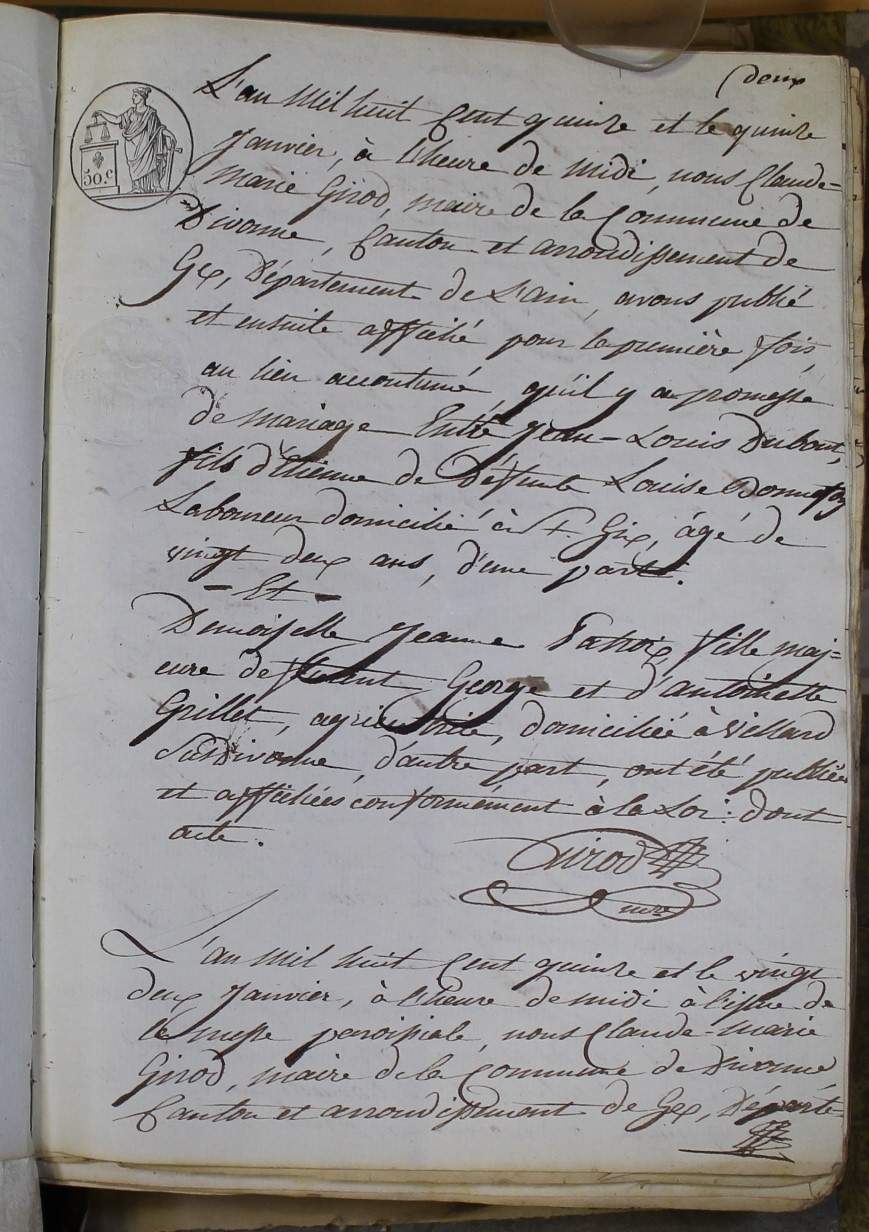 deux
50.c
L'an mil huit Cent quinze et le quinze
Janvier, à l'heure de midi, nous Claude-
Marie Girod, maire de la Commune de
Divonne, Canton et arrondissement de
Gex, Département de L'ain, avons publié
et ensuite affiché pour la première fois,
au lieu accoutumé, qu'il y a promesse
de mariage Entre Jean-Louis Dubout,
fils d'Etienne de Défunte Louise
Laboureur domicilié à Gex, âgé de
vingt deux ans, d'une part.
- Et -
Demoiselle Jeanne fille maj=
eure de George et d'antoinette
Grillet, agricultrice, domiciliée à Villard
Sur Divonne, d'autre part, ont été publiées
et affichées conformément à la Loi: dont
acte.
Girod
L'an mil huit Cent quinze et le vingt
deux Janvier, à l'heure de midi à l'issue de
la messe paroissiale, nous Claude-Marie
Girod, maire de la Commune de Divonne
Canton et arrondissement de Gex, Départe-